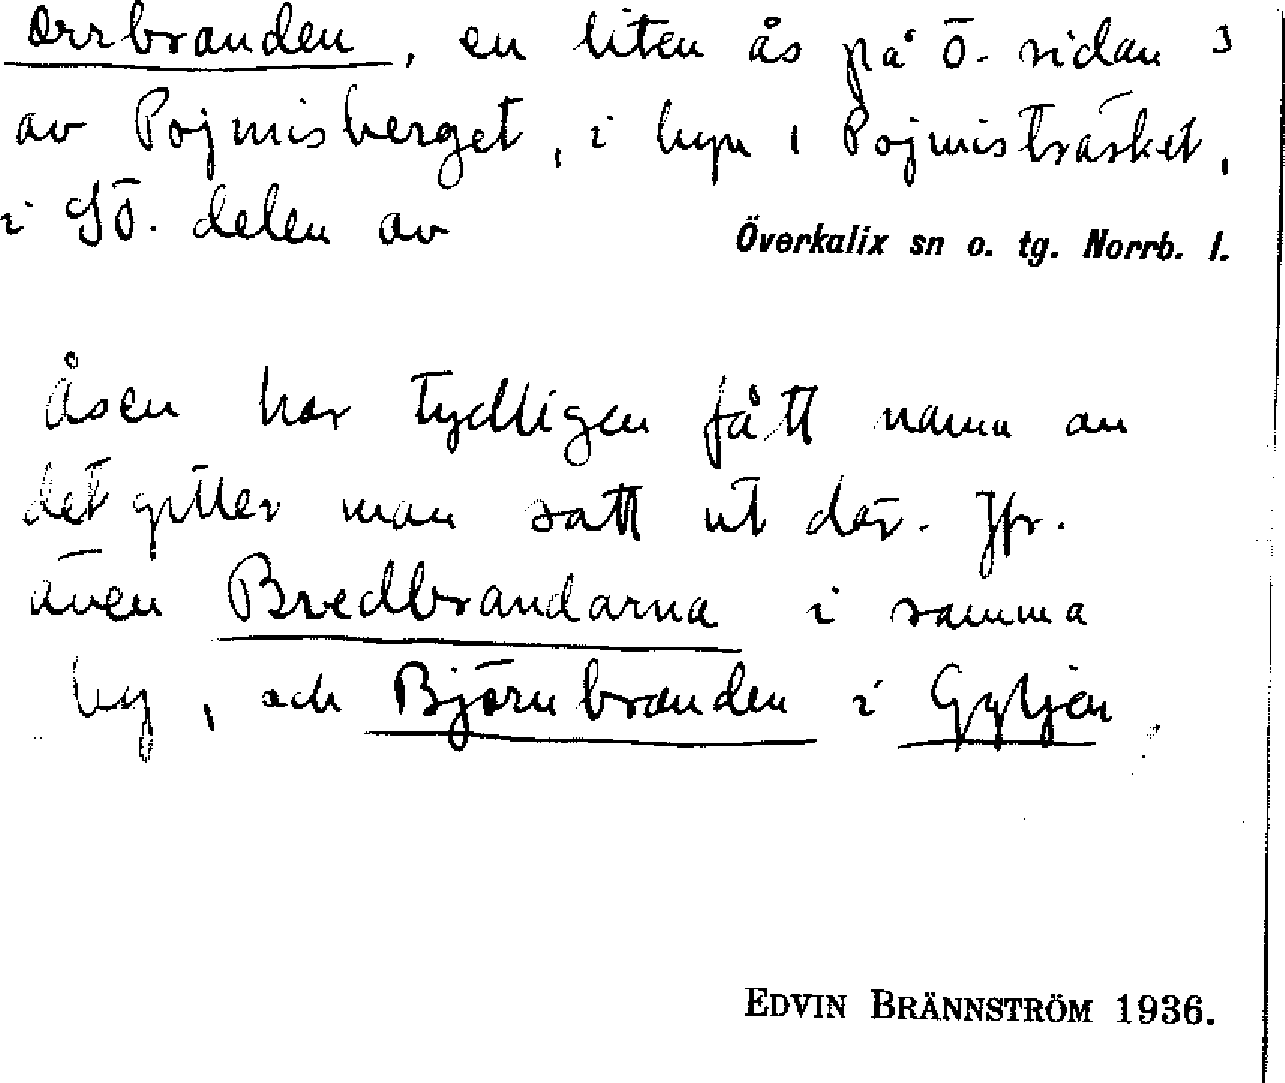 Orrbranden, en liten ås på Ö. sidan 3
av Pojmisberget, i byn i Pojmisträsket,
i SÖ. delen av Överkalix sn o. tg. Norrb. l.
Åsen har tydligen fått namn av
det giller man satt ut där. Jfr.
även Bredbrandarna i samma
by, och Björnbranden i Gyljen.
EDVIN BRÄNNSTRÖM 1936.